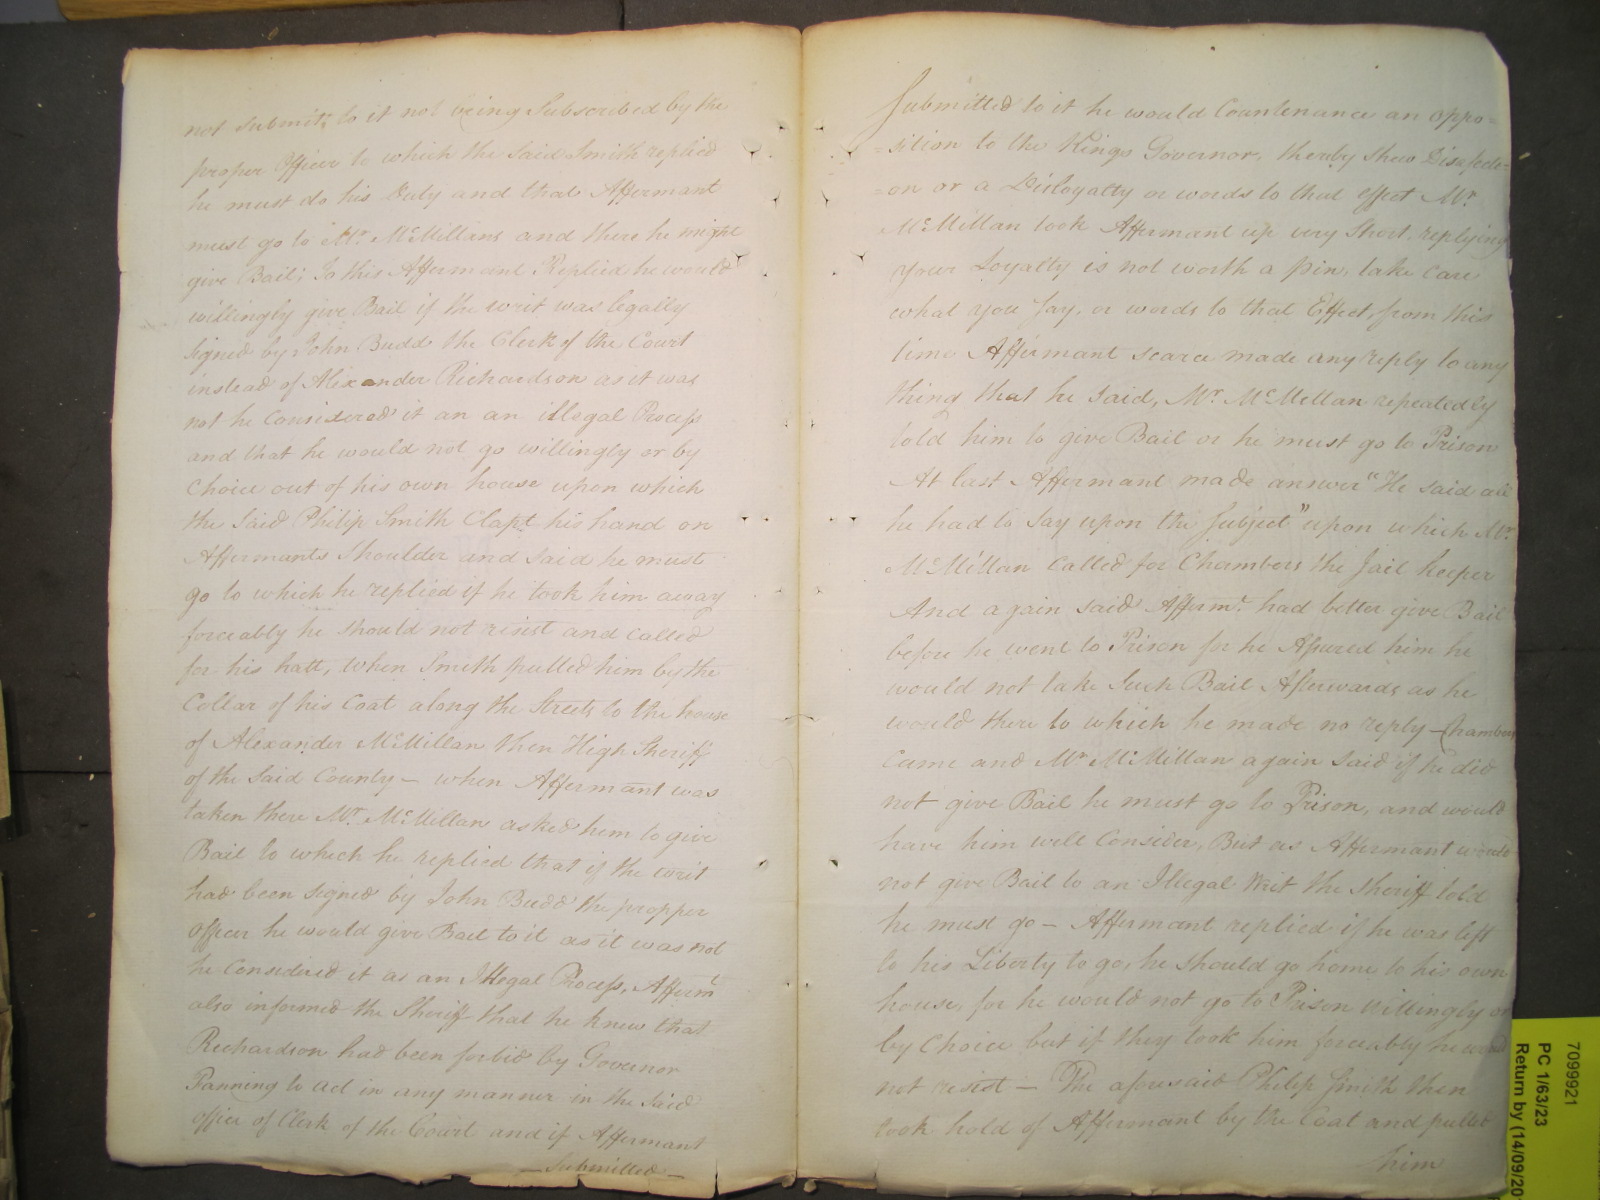 not submitt to it not being Subscribed by the
proper Officer to which the Said Smith replied
he must do his Duty and that Affermant
must go to Mr. McMillans and there he might
give Bail; To this Affermant Replied he would
willingly give Bail if the writ was legally
signed by John Budd the Clerk of the Court
instead of Alixander Richardson as it was
not he Considered it an an illegal Process
and that he would not go willingly or by
Choice out of his own house upon which
the Said Philip Smith Clapt his hand on
Affermants Shoulder and said he must
go to which he replied if he took him away
forceably he should not resist and called
for his hatt, when Smith pulled him by the
Collar of his Coat along the Streets to the house
of Alexander McMillan then High Sheriff
of the Said County – when Affermant was
taken there Mr. McMillan asked him to give
Bail to which he replied that if the writ
had been signed by John Budd the propper
officer he would give Bail to it as it was not
he Considered it as an Illegal Process, Afferm.t
also informed the Sheriff that he knew that
Richardson had been forbid by Governor
Fanning to act in any manner in the Said
office of Clerk of the Court and if Affermant
– Submitted –
Submitted to it he would Countenance an oppo=
=sition to the Kings Governor, thereby shew Disafecti-
=on or a Disloyalty or words to that effect Mr.
McMillan took Affermant up very Short, replying
your Loyalty is not worth a pin, take care
what you Say, or words to that Effect, from this
time Affermant scarce made any reply to any
thing that he Said, Mr. McMillan repeatedly
told him to give Bail or he must go to Prison
At last Affermant made answer "He said all
he had to Say upon the Subject" upon which Mr.
McMillan Called for Chambers the Jail keeper
And again said Afferm.t had better give Bail
before he went to Prison for he Assured him he
would not take Such Bail Afterwards as he
would there to which he made no reply – Chambers
Came and Mr McMillan again Said if he did
not give Bail he must go to Prison, and would
have him well Consider, But as Affermant would
not give Bail to an Illegal Writ the Sheriff told
he must go – Affermant replied if he was left
to his Liberty to go, he should go home to his own
house, for he would not go to Prison Willingly or
by Choice but if they took him forceably he would
not resist – The aforesaid Philip Smith then
took hold of Affermant by the Coat and pulled
him
7099921
PC 1/63/23
Return by (14/09/20